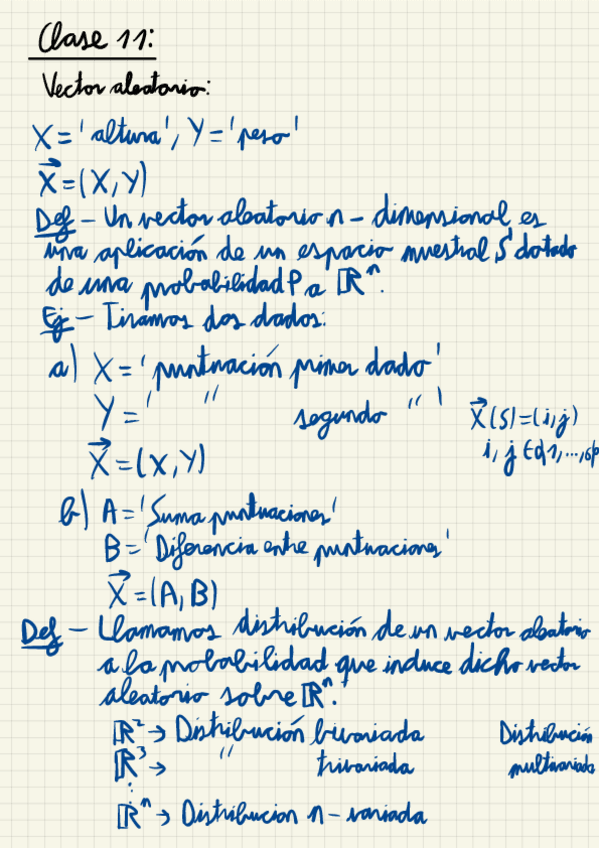 Clase 11:
Vector aleatorio:
X = 'altura', Y = 'peso'
X⃗ = (X, Y)
Def - Un vector aleatorio n-dimensional es
una aplicación de un espacio muestral S dotado
de una probabilidad P a ℝⁿ.
Ej - Tiramos dos dados:
a) X = 'puntuación primer dado'
Y = ' " segundo " '
X⃗(S) = (i, j)
i, j ∈ {1, ..., 6}
X⃗ = (X, Y)
b) A = 'Suma puntuaciones'
B = 'Diferencia entre puntuaciones'
X⃗ = (A, B)
Def - Llamamos distribución de un vector aleatorio
a la probabilidad que induce dicho vector
aleatorio sobre ℝⁿ.
ℝ² → Distribución bivariada
ℝ³ → " trivariada
⋮
ℝⁿ → Distribucion n-variada
Distribución
multivariada